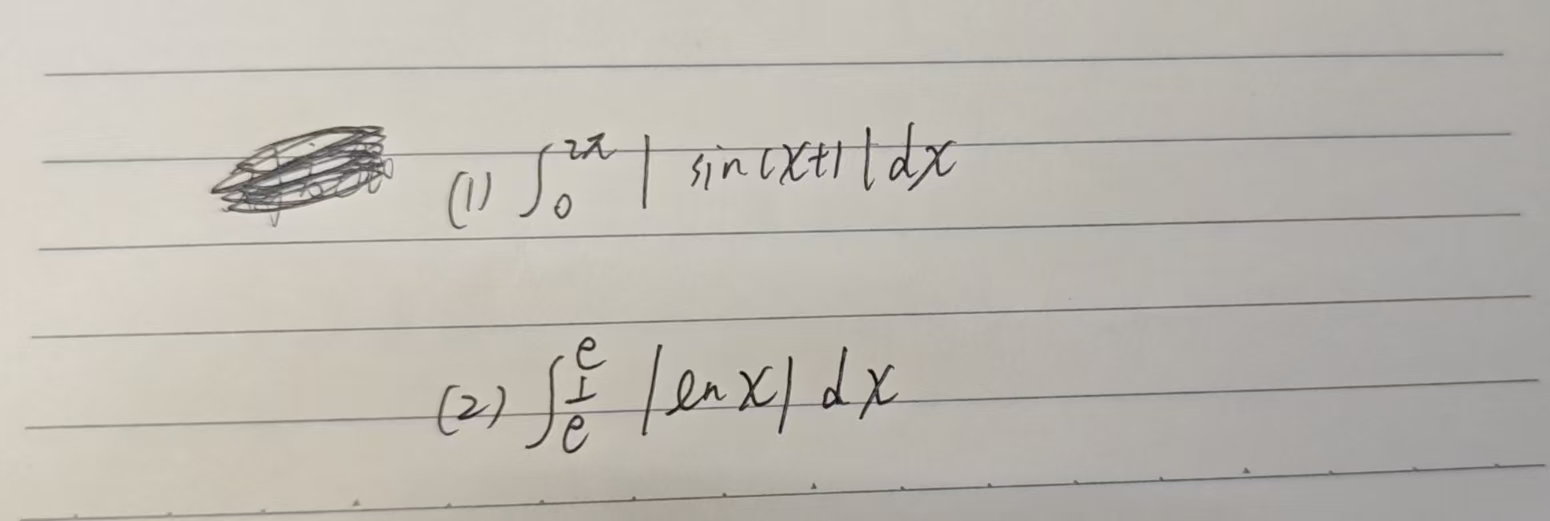 (1) ∫₀^{2π} | sin(x+1 | dx
(2) ∫_{1/e}^{e} |ln x| dx